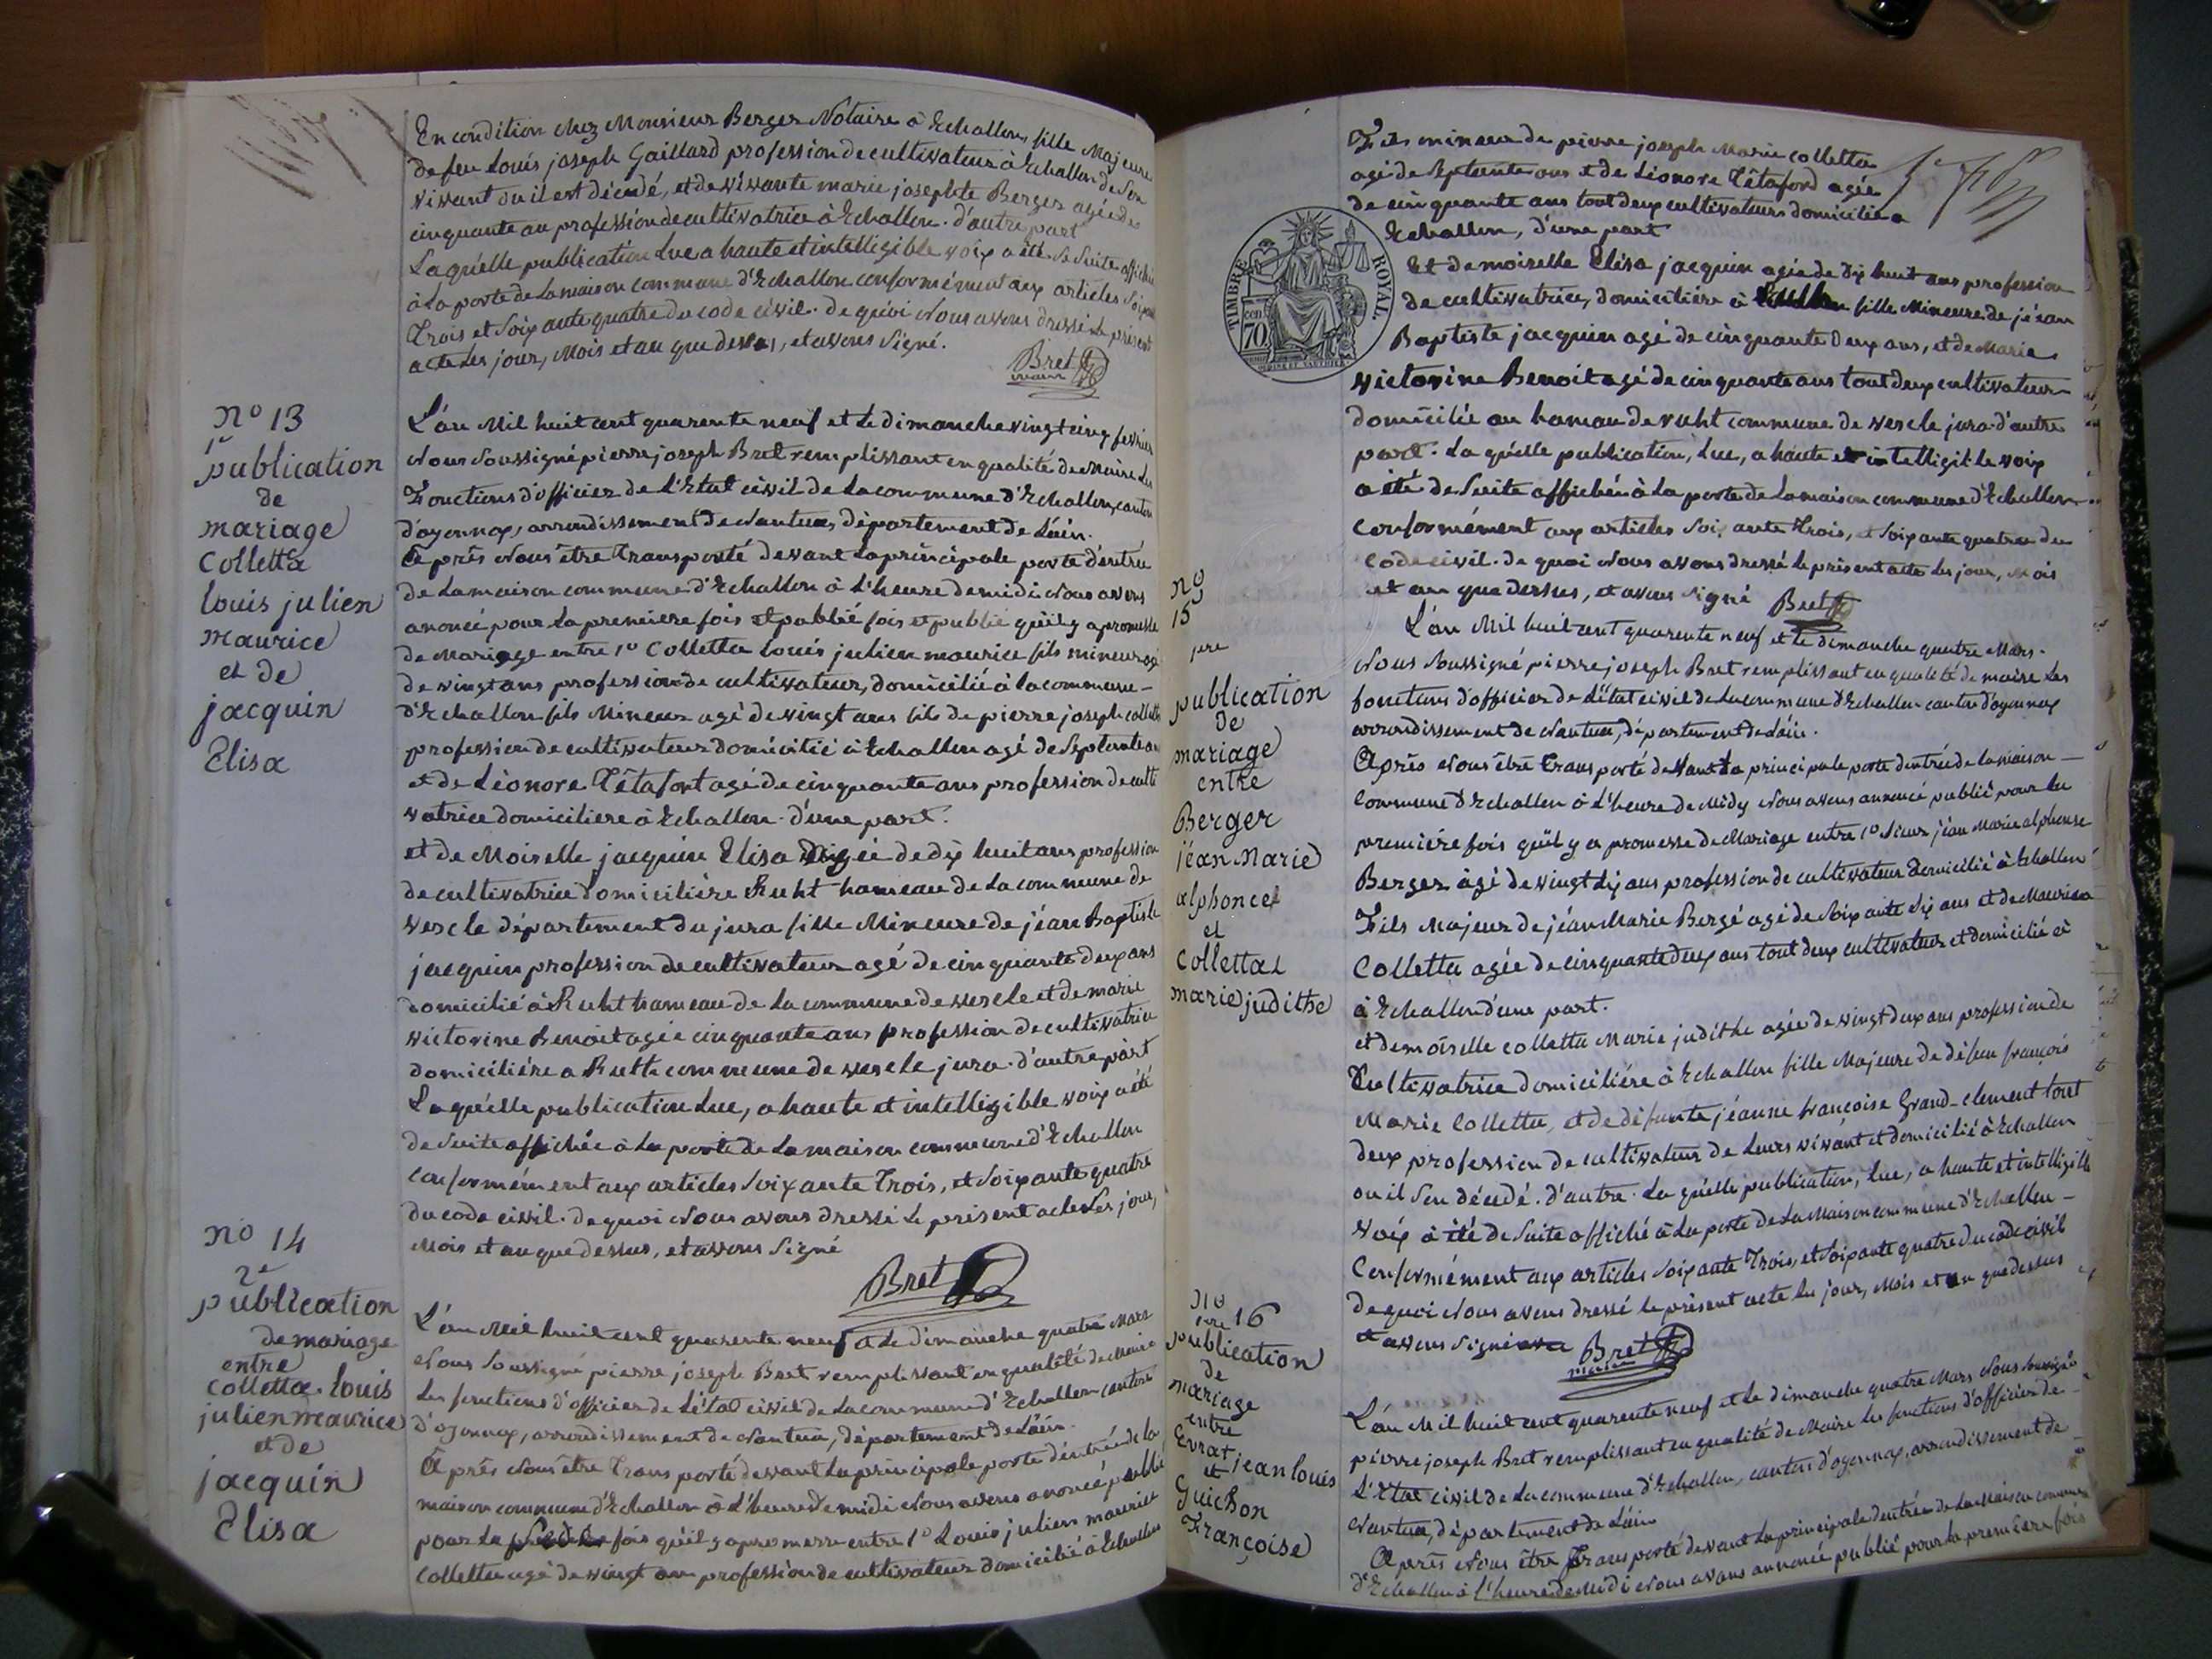 En condition chez Monsieur Berger Notaire à Echallon, fille Majeure
de feu Louis joseph Gaillard profession de cultivateur à Echallon de son
vivant ou il est décedé, et de vivante marie josephte Berger agée de
cinquante an profession de cultivatrice à Echallon. d'autre part
Laquelle publication Lue a haute et intelligible voix a été de suite affichée
à La porte de La maison commune d'Echallon conformément aux articles soixante
Trois et Soixante quatre du code civil. de quoi Nous avons dressé Le présent
acte Les jour, Mois et an que dessus, et avons Signé.
Bret
maire
N° 13
1e
publication
de
mariage
Colletta
louis julien
maurice
et de
jacquin
Elisa
L'an Mil huit cent quarente neuf et Le dimanche vingt cinq fevrier
Nous Soussigné pierre joseph Bret remplissant en qualité de Maire Les
Fonctions d'officier de L'Etat civil de La commune d'Echallon, canton
d'oyonnax, arrondissement de Nantua, département de L'ain.
Après Nous être Transporté devant La principale porte d'entrée
de La maison commune d'Echallon à L'heure de midi Nous avons
anoncé pour La premiere fois et publié fois et publié qu'il y a promesse
de Mariage entre 1° Colletta Louis julien maurice fils mineur agé
de vingt ans profession de cultivateur, domicilié à la commune -
d'Echallon fils Mineur agé de vingt ans fils de pierre joseph colletta
profession de cultivateur domicilié à Echallon agé de Septante an
et de Léonore Tétafort agé de cinquante ans profession de culti
vatrice domiciliere à Echallon. d'une part.
et de Moiselle jacquin Elisa agée de dix huit ans profession
de cultivatrice domiciliére Ruht hameau de La commune de
vescle département du jura fille Mineure de jéan Baptiste
jacquin profession de cultivateur agé de cinquante deux ans
domicilié à Ruht hameau de La commune de vescle et de marie
victorine Benoit agée cinquante ans profession de cultivatrice
domiciliére a Ruth commune de vescle jura. d'autre part
Laquelle publication Lue, a haute et intelligible voix a été
de Suite affichée à La porte de La maison commune d'Echallon
conformément aux articles Soixante Trois, et Soixante quatre
du code civil. de quoi Nous avons dressé Le présent acte Les jour,
Mois et an que dessus, et avons Signé
Bret
N° 14
2e
publication
de mariage
entre
Colletta louis
julien maurice
et de
jacquin
Elisa
L'an Mil huit cent quarente neuf et Le dimanche quatre Mars
Nous Soussigné pierre joseph Bret remplissant en qualité de Maire
Les fonctions d'officier de L'état civil de La commune d'Echallon canton
d'oyonnax, arrondissement de Nantua, département de L'ain.
Après Nous être Transporté devant La principale porte d'entrée de la
maison commune d'Echallon à L'heure de midi Nous avons anoncé publié
pour La fois qu'il y a promesse entre 1° Louis julien maurice
Colletta agé de vingt ans profession de cultivateur domicilié à Echallon
Fils mineur de pierre joseph Marie colletta
agé de Septante ans et de Léonore Tétaford agée
de cinquante ans tout deux cultivateurs domicilié a
Echallon, d'une part
TIMBRE ROYAL
70 cen
Et demoiselle Elisa jacquin agée de dix huit ans profession
de cultivatrice, domiciliére à fille Mineure de jéan
Baptiste jacquin agé de cinquante deux ans, et de Marie
victorine Benoit agé de cinquante ans tout deux cultivateur
domicilié au hamau de ruht commune de vescle jura. d'autre
part. La quelle publication, Lue, a haute et intelligible voix
a été de Suite affichée à La porte de La maison commune d'Echallon
Conformément aux articles Soixante Trois, et Soixante quatre du
code civil. de quoi Nous avons dressé Le présent acte Les jour, Mois
et an que dessus, et avons signé Bret
N°
15
1re
publication
de
mariage
entre
Berger
jéan Marie
alphonce
et
Colletta
marie judithe
L'an Mil huit cent quarente neuf et Le dimanche quatre Mars.
Nous Soussigné pierre joseph Bret remplissant en qualité de maire Les
fonctions d'officier de L'état civil de La commune d'Echallon canton d'oyonnax
arrondissement de Nantua, département de L'ain.
Après Nous être Transporté devant La principale porte d'entrée de La maison -
Commune d'Echallon à L'heure de Midy Nous avons annoncé publié pour La
première fois qu'il y a promesse de Mariage entre 1° Sieur jéan Marie alphonse
Berger agé de vingt six ans profession de cultivateur domicilié à Echallon
Fils Majeur de jéan Marie Bergé agé de Soixante Six ans et de Maurisa
Colletta agée de cinquante deux ans tout deux cultivateur et domicilié à
à Echallon d'une part.
et demoiselle colletta Marie judithe agée de vingt deux ans profession de
Cultivatrice domiciliére à Echallon fille Majeure de défeu françois
Marie Colletta, et de défunte jéanne françoise Grand-clement tout
deux profession de cultivateur de Leurs vivant et domicilié à Echallon
ou il Son décedé. d'autre. La quelle publication, Lue, a haute et intelligible
voix a été de Suite affiché à La porte de La Maison commune d'Echallon -
Conformément aux articles Soixante Trois, et Soixante quatre du code civil
de quoi Nous avons dressé le présent acte Les jour, Mois et an que dessus
et avons signé Bret
maire
N° 16
1re
publication
de
mariage
entre
Evrat jean louis
et
Guichon
Françoise
L'an Mil huit cent quarente neuf et Le dimanche quatre Mars Nous Soussigné
pierre joseph Bret remplissant en qualité de Maire Les fonctions d'officier de
L'Etat civil de La commune d'Echallon, canton d'oyonnax, arrondissement de
Nantua, département de L'ain
Après Nous être Transporté devant La principale d'entrée de La Maison commune
d'Echallon à L'heure de Midi Nous avons annoncé publié pour La première fois